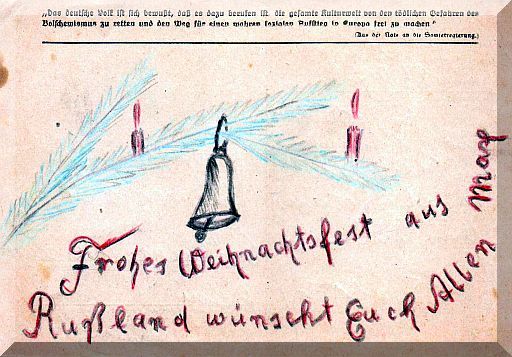 „Das deutsche Volk ist sich bewußt, daß es dazu berufen ist die gesamte Kulturwelt von den tödlichen Gefahren des
Bolschewismus zu retten und den Weg für einen wahren sozialen Aufstieg in Europa frei zu machen“
(Aus der Note an die Sowjetregierung.)
Frohes Weihnachtsfest aus
Rußland wünscht Euch Allen Max